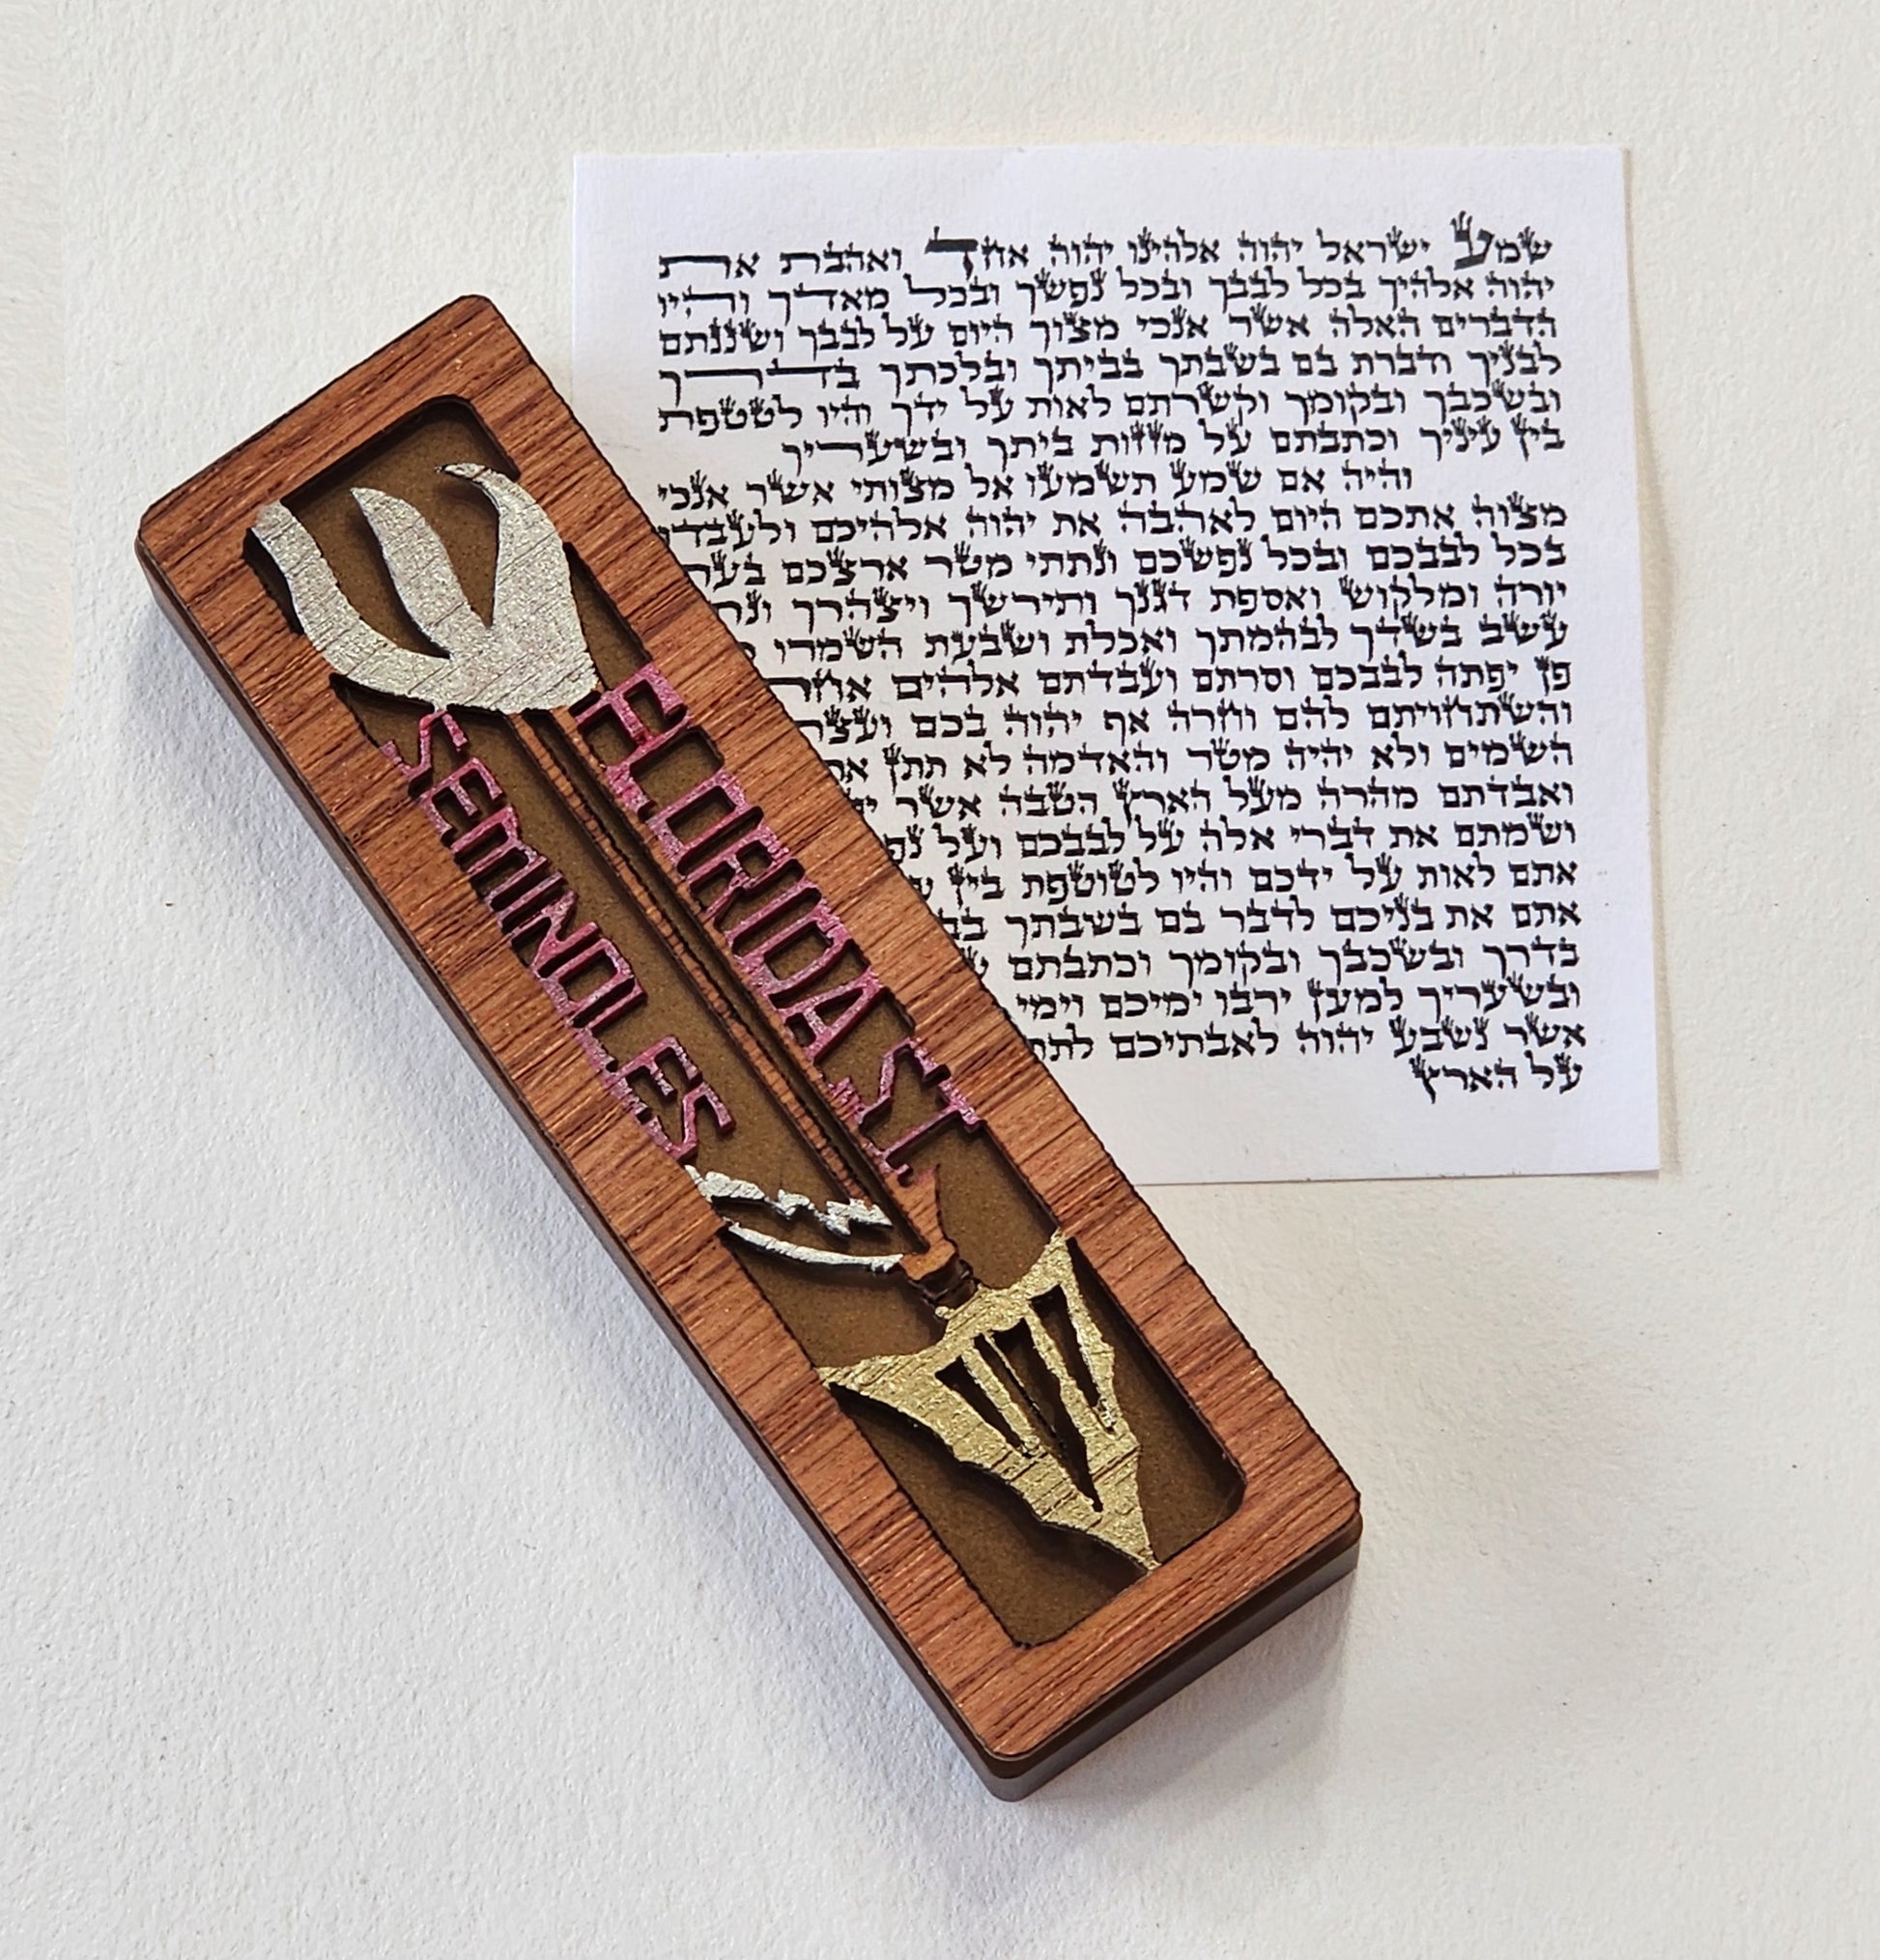 ש
FLORIDA ST
SEMINOLES
שמע ישראל יהוה אלהינו יהוה אחד ואהבת את
יהוה אלהיך בכל לבבך ובכל נפשך ובכל מאדך והיו
הדברים האלה אשר אנכי מצוך היום על לבבך ושננתם
לבניך ודברת בם בשבתך בביתך ובלכתך בדרך
ובשכבך ובקומך וקשרתם לאות על ידך והיו לטטפת
בין עיניך וכתבתם על מזזות ביתך ובשעריך
והיה אם שמע תשמעו אל מצותי אשר אנכי
מצוה אתכם היום לאהבה את יהוה אלהיכם ולעבדו
בכל לבבכם ובכל נפשכם ונתתי מטר ארצכם בעת
יורה ומלקוש ואספת דגנך ותירשך ויצהרך
עשב בשדך לבהמתך ואכלת ושבעת השמרו
פן יפתה לבבכם וסרתם ועבדתם אלהים
והשתחויתם להם וחרה אף יהוה בכם ועצר
השמים ולא יהיה מטר והאדמה לא תתן את
ואבדתם מהרה מעל הארץ הטבה אשר
ושמתם את דברי אלה על לבבכם ועל
אתם לאות על ידכם והיו לטוטפת בין
אתם את בניכם לדבר בם בשבתך
בדרך ובשכבך ובקומך וכתבתם
ובשעריך למען ירבו ימיכם וימי
אשר נשבע יהוה לאבתיכם לתת
על הארץ